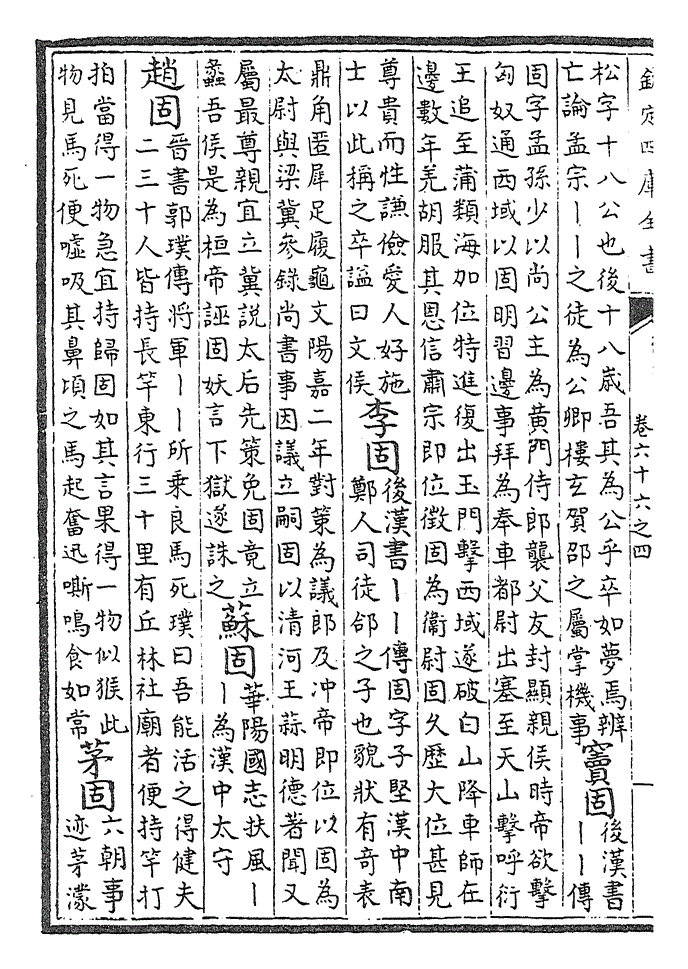 欽定四庫全書
卷六十六之四
松字十八公也後十八歲吾其為公乎卒如夢焉辨
亡論孟宗丨丨之徒為公卿樓玄賀邵之屬掌機事
竇固
後漢書
丨丨傳
固字孟孫少以尚公主為黃門侍郎襲父友封顯親侯時帝欲擊
匈奴通西域以固明習邊事拜為奉車都尉出塞至天山擊呼衍
王追至蒲類海加位特進復出玉門擊西域遂破白山降車師在
邊數年羌胡服其恩信肅宗即位徵固為衞尉固久歷大位甚見
尊貴而性謙儉愛人好施
士以此稱之卒諡曰文侯
李固
後漢書丨丨傳固字子堅漢中南
鄭人司徒郃之子也貌狀有奇表
鼎角匿犀足履龜文陽嘉二年對策為議郎及冲帝即位以固為
太尉與梁冀參錄尚書事因議立嗣固以清河王蒜明德著聞又
屬最尊親宜立冀說太后先策免固竟立
蠡吾侯是為桓帝誣固妖言下獄遂誅之
蘇固
華陽國志扶風丨
丨為漢中太守
趙固
晉書郭璞傳將軍丨丨所乘良馬死璞曰吾能活之得健夫
二三十人皆持長竿東行三十里有丘林社廟者便持竿打
拍當得一物急宜持歸固如其言果得一物似猴此
物見馬死便噓吸其鼻頃之馬起奮迅嘶鳴食如常
茅固
六朝事
迹茅濛